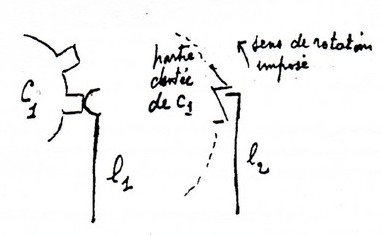 C1
l1
partie
dentée
de C1
sens de rotation
imposé
l2